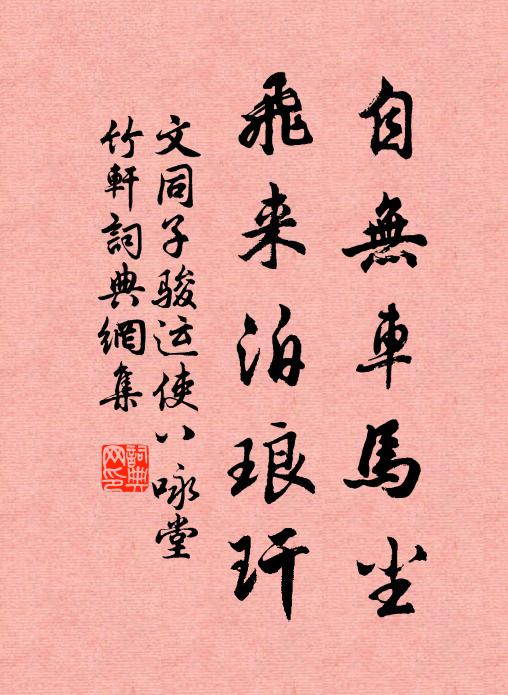 自無車馬尘
飛来泊琅玕
文同子骏运使八咏堂
竹軒詞典網集
詞典网印